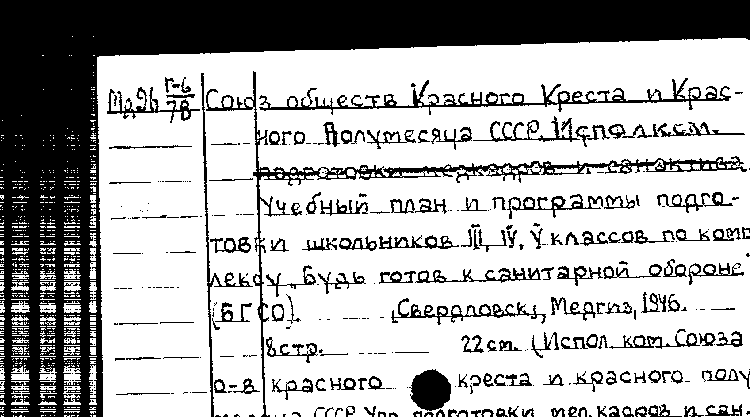 Мд2b Г-6/78 Союз обществ Красного Креста и Крас-
ного Полумесяца СССР. Исполком.
подготовки медкадров и санактива
Учебный план и программы подго-
товки школьников III, IV, V классов по комп
лексу „Будь готов к санитарной обороне"
(БГСО). [Свердловск], Медгиз, 1946.
8 стр. 22 см. (Испол. ком. Союза
о-в красного креста и красного полу
СССР. Упр. подготовки мед. кадров и сан.